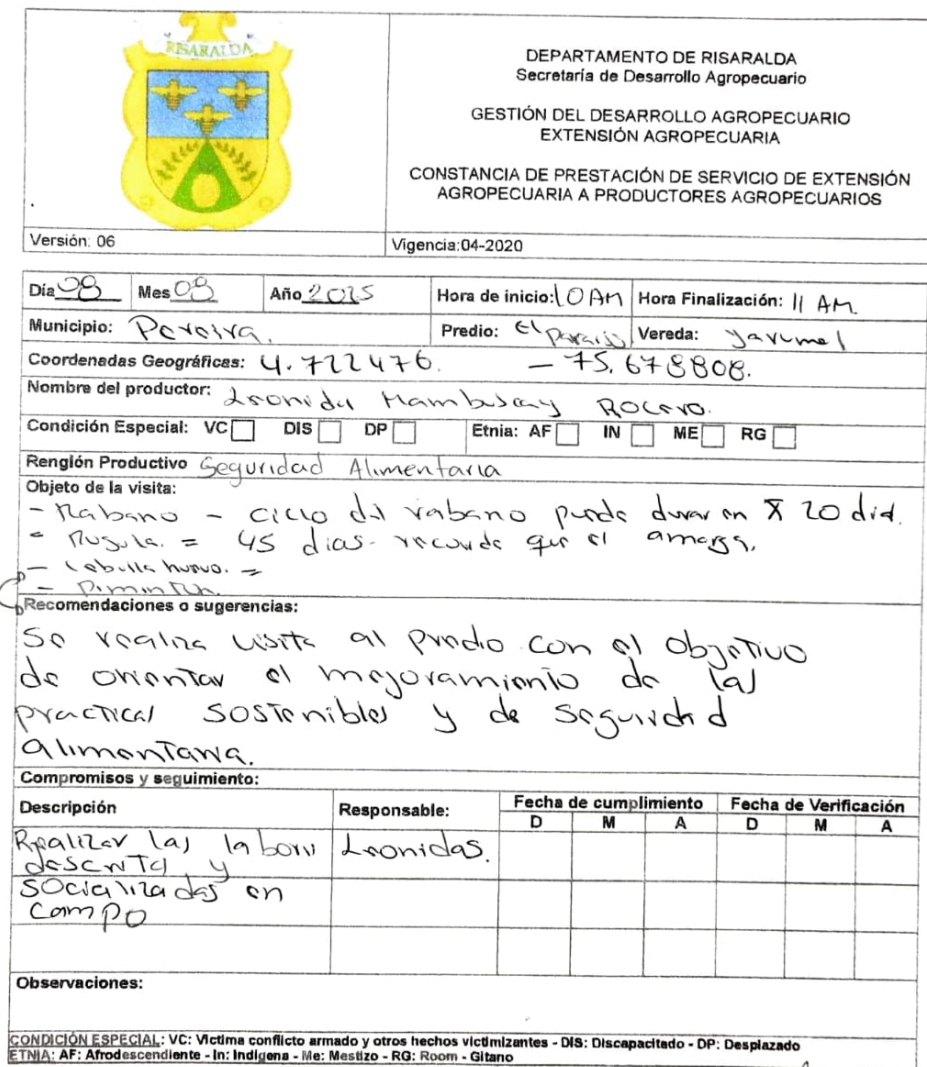 RISARALDA
DEPARTAMENTO DE RISARALDA
Secretaría de Desarrollo Agropecuario
GESTIÓN DEL DESARROLLO AGROPECUARIO
EXTENSIÓN AGROPECUARIA
CONSTANCIA DE PRESTACIÓN DE SERVICIO DE EXTENSIÓN
AGROPECUARIA A PRODUCTORES AGROPECUARIOS
Versión: 06 Vigencia:04-2020
Día 08 Mes 08 Año 2025 Hora de inicio: 10 AM Hora Finalización: 11 AM
Municipio: Pereira. Predio: El Paraiso Vereda: Yarumal
Coordenadas Geográficas: 4.722476. - 75.678808.
Nombre del productor: Leonidas
Condición Especial: VC DIS DP Etnia: AF IN ME RG
Renglón Productivo Seguridad Alimentaria
Objeto de la visita:
- Rabano - ciclo del rabano puede durar en 20
- Rugula. = 45 dias. recuerde que el amarga.
- Cebolla huevo. =
- Pimenton.
Recomendaciones o sugerencias:
Se realiza visita al predio con el objetivo
de orientar el mejoramiento de las
practicas sostenibles y de seguridad
alimentaria.
Compromisos y seguimiento:
Descripción Responsable: Fecha de cumplimiento Fecha de Verificación
D M A D M A
Realizar las labores Leonidas.
descrita y
socializadas en
campo
Observaciones:
CONDICIÓN ESPECIAL: VC: Victima conflicto armado y otros hechos victimizantes - DIS: Discapacitado - DP: Desplazado
ETNIA: AF: Afrodescendiente - In: Indígena - Me: Mestizo - RG: Room - Gitano